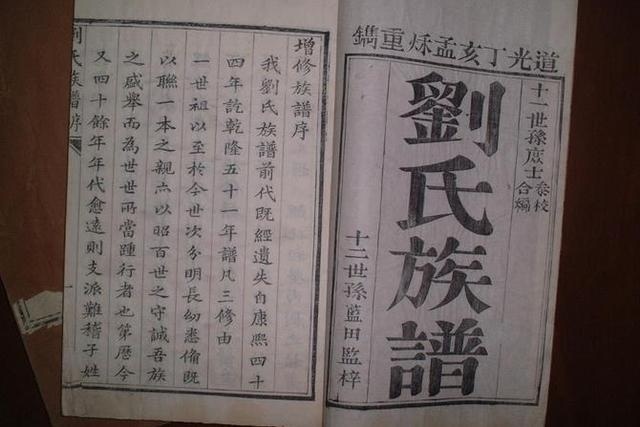 道光丁亥孟秌重鐫
十一世孫庻士叅校
合編
劉氏族譜
十二世孫藍田監梓
增修族譜序
我劉氏族譜前代既經遺失自康熙四十
四年訖乾隆五十一年譜凡三修由
一世祖以至於今世次分明長幼悉俻既
以聯一本之親亦以昭百世之守誠吾族
之盛舉而為世世所當踵行者也第歷今
又四十餘年年代愈遠則支派難稽子姓
劉氏族譜序
一